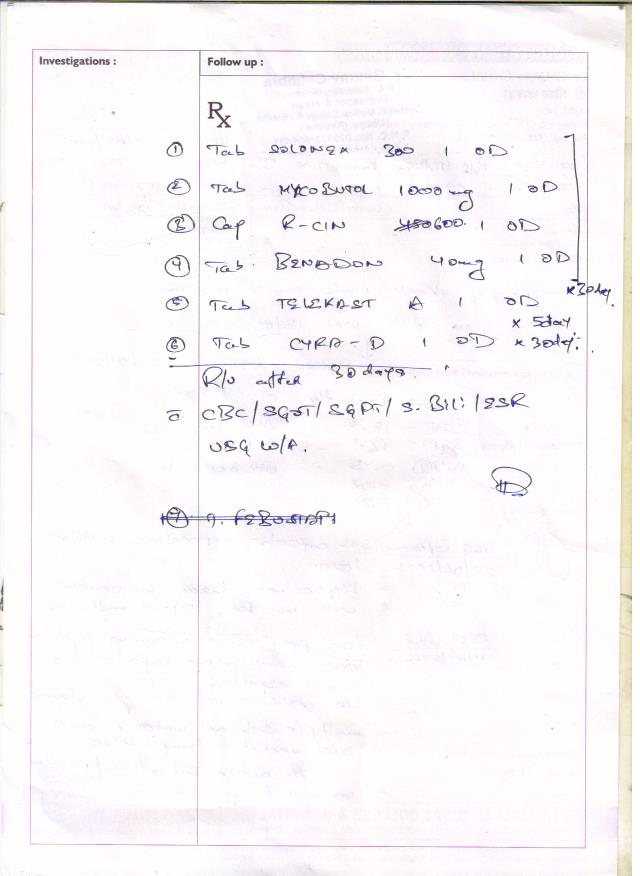 Investigations :
Follow up :
Rx
① Tab SOLONEX 300 1 OD
② Tab MYCOBUTOL 1000mg 1 OD
③ Cap R-CIN 600 1 OD
④ Tab. BENADON 40mg 1 OD
x 30day.
⑤ Tab TELEKAST A 1 OD
x 5day
⑥ Tab CYRA-D 1 OD x 30day.
R/v after 30days.
c̄ CBC/SGOT/SGPT/S.Bili/ESR
USG W/A.